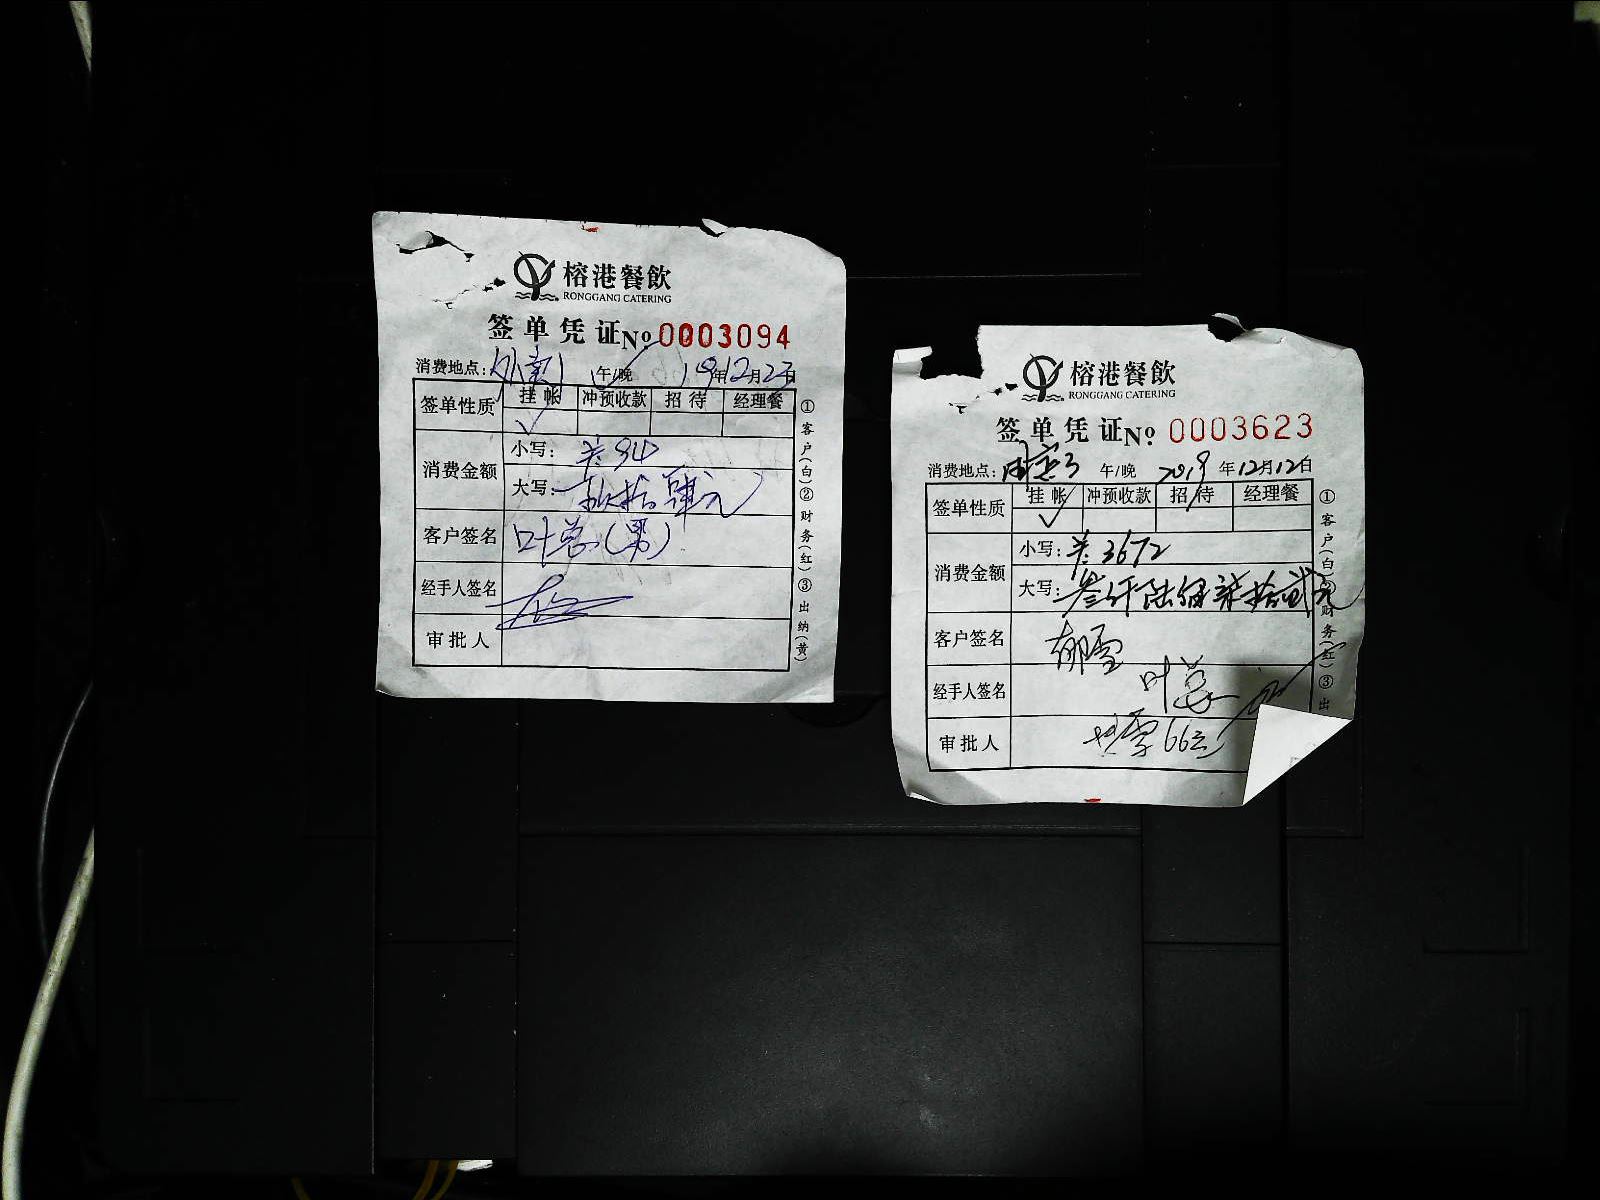 榕港餐飲
RONGGANG CATERING
签单凭证№0003094
消费地点: 午/晚 19年12月23日
签单性质 挂帐 冲预收款 招待 经理餐
✓
消费金额 小写:
大写:
客户签名 叶总(男)
经手人签名
审批人
①客户(白)②财务(红)③出纳(黄)
榕港餐飲
RONGGANG CATERING
签单凭证№ 0003623
消费地点: 午/晚 2019年12月12日
签单性质 挂帐 冲预收款 招待 经理餐
✓
消费金额 小写: 3672
大写: 叁仟陆佰柒拾贰元
客户签名 郁雪
经手人签名 叶总
审批人
①客户(白)②财务(红)③出